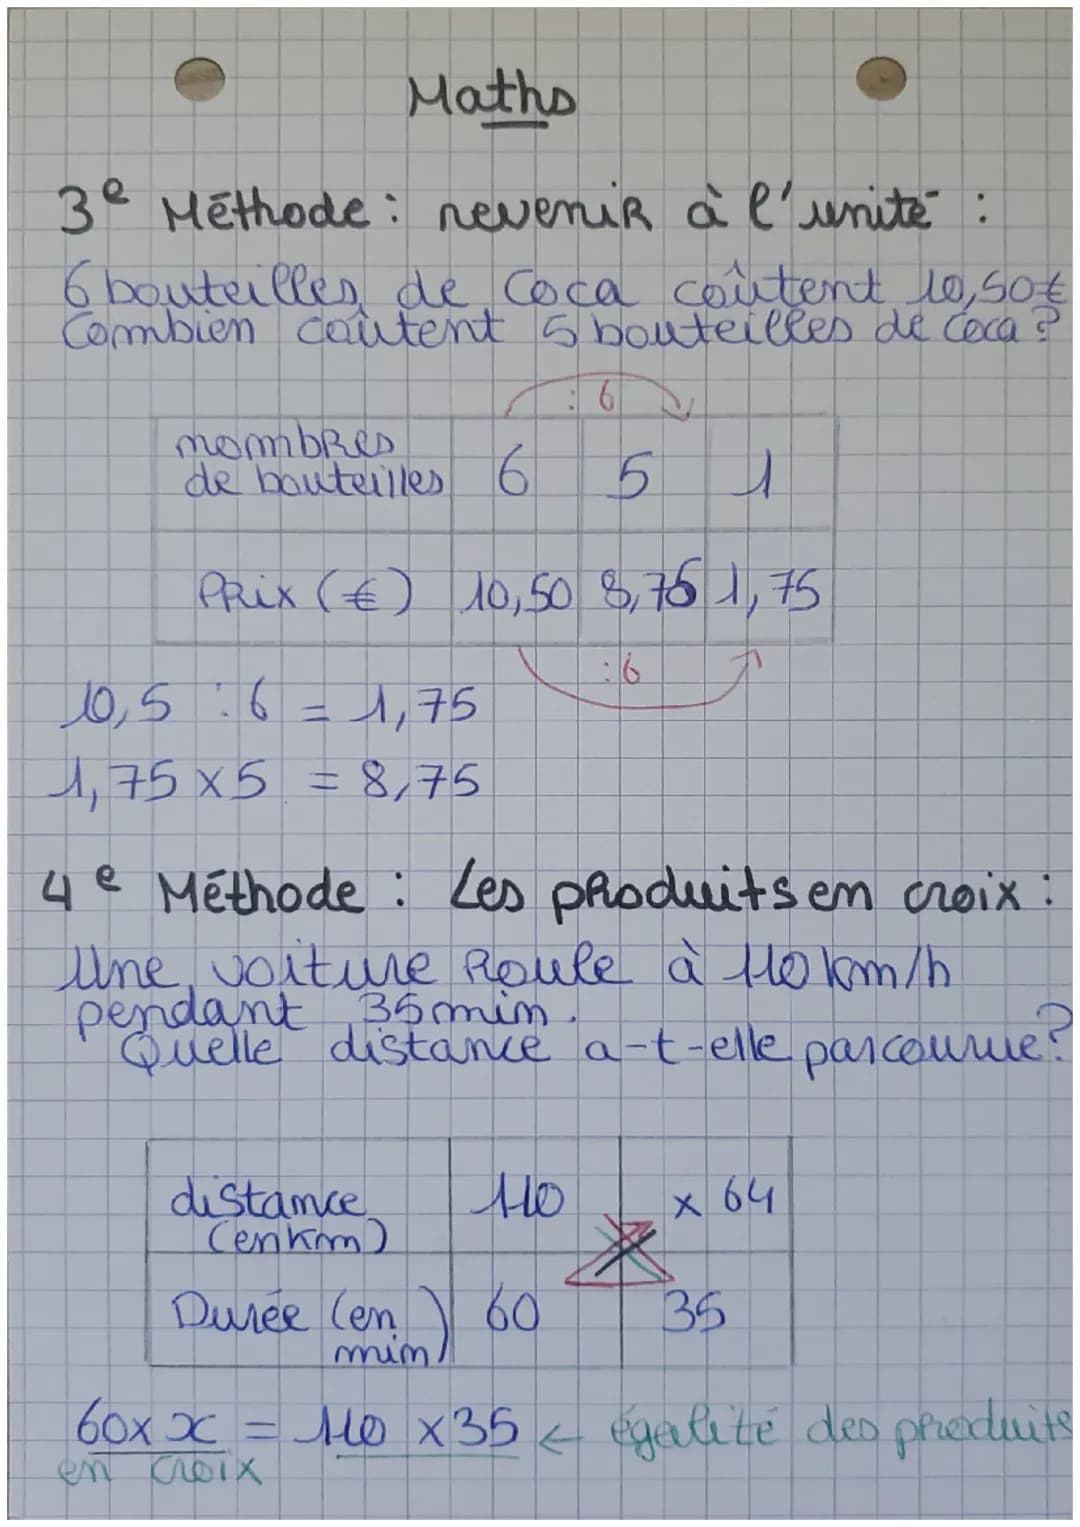 Maths
3e Méthode : revenir à l'unité :
6 bouteilles de Coca coûtent 10,50€
Combien coûtent 5 bouteilles de Coca ?
: 6
nombres
de bouteilles 6 5 1
Prix (€) 10,50 8,75 1,75
: 6
10,5 : 6 = 1,75
1,75 x 5 = 8,75
4e Méthode : Les produits en croix :
Une voiture Roule à 110 km/h
pendant 35 min.
Quelle distance a-t-elle parcourue ?
distance 110 x 64
(en km)
Durée (en 60 35
min)
60 x x = 110 x 35 ← égalité des produits
en croix